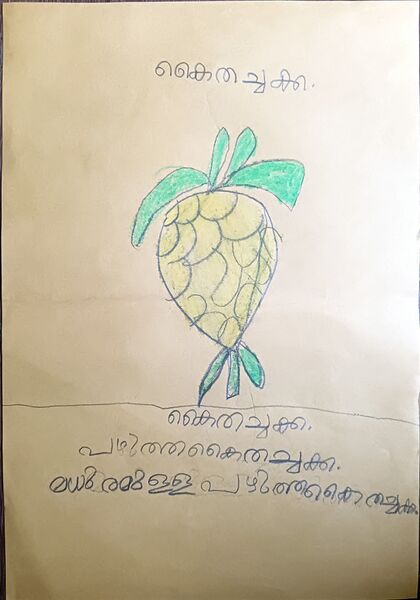 കൈതച്ചക്ക.
കൈതച്ചക്ക.
പഴിത്തകൈതച്ചക്ക.
മധുരമുള്ള പഴിത്തകൈതച്ചക്ക.